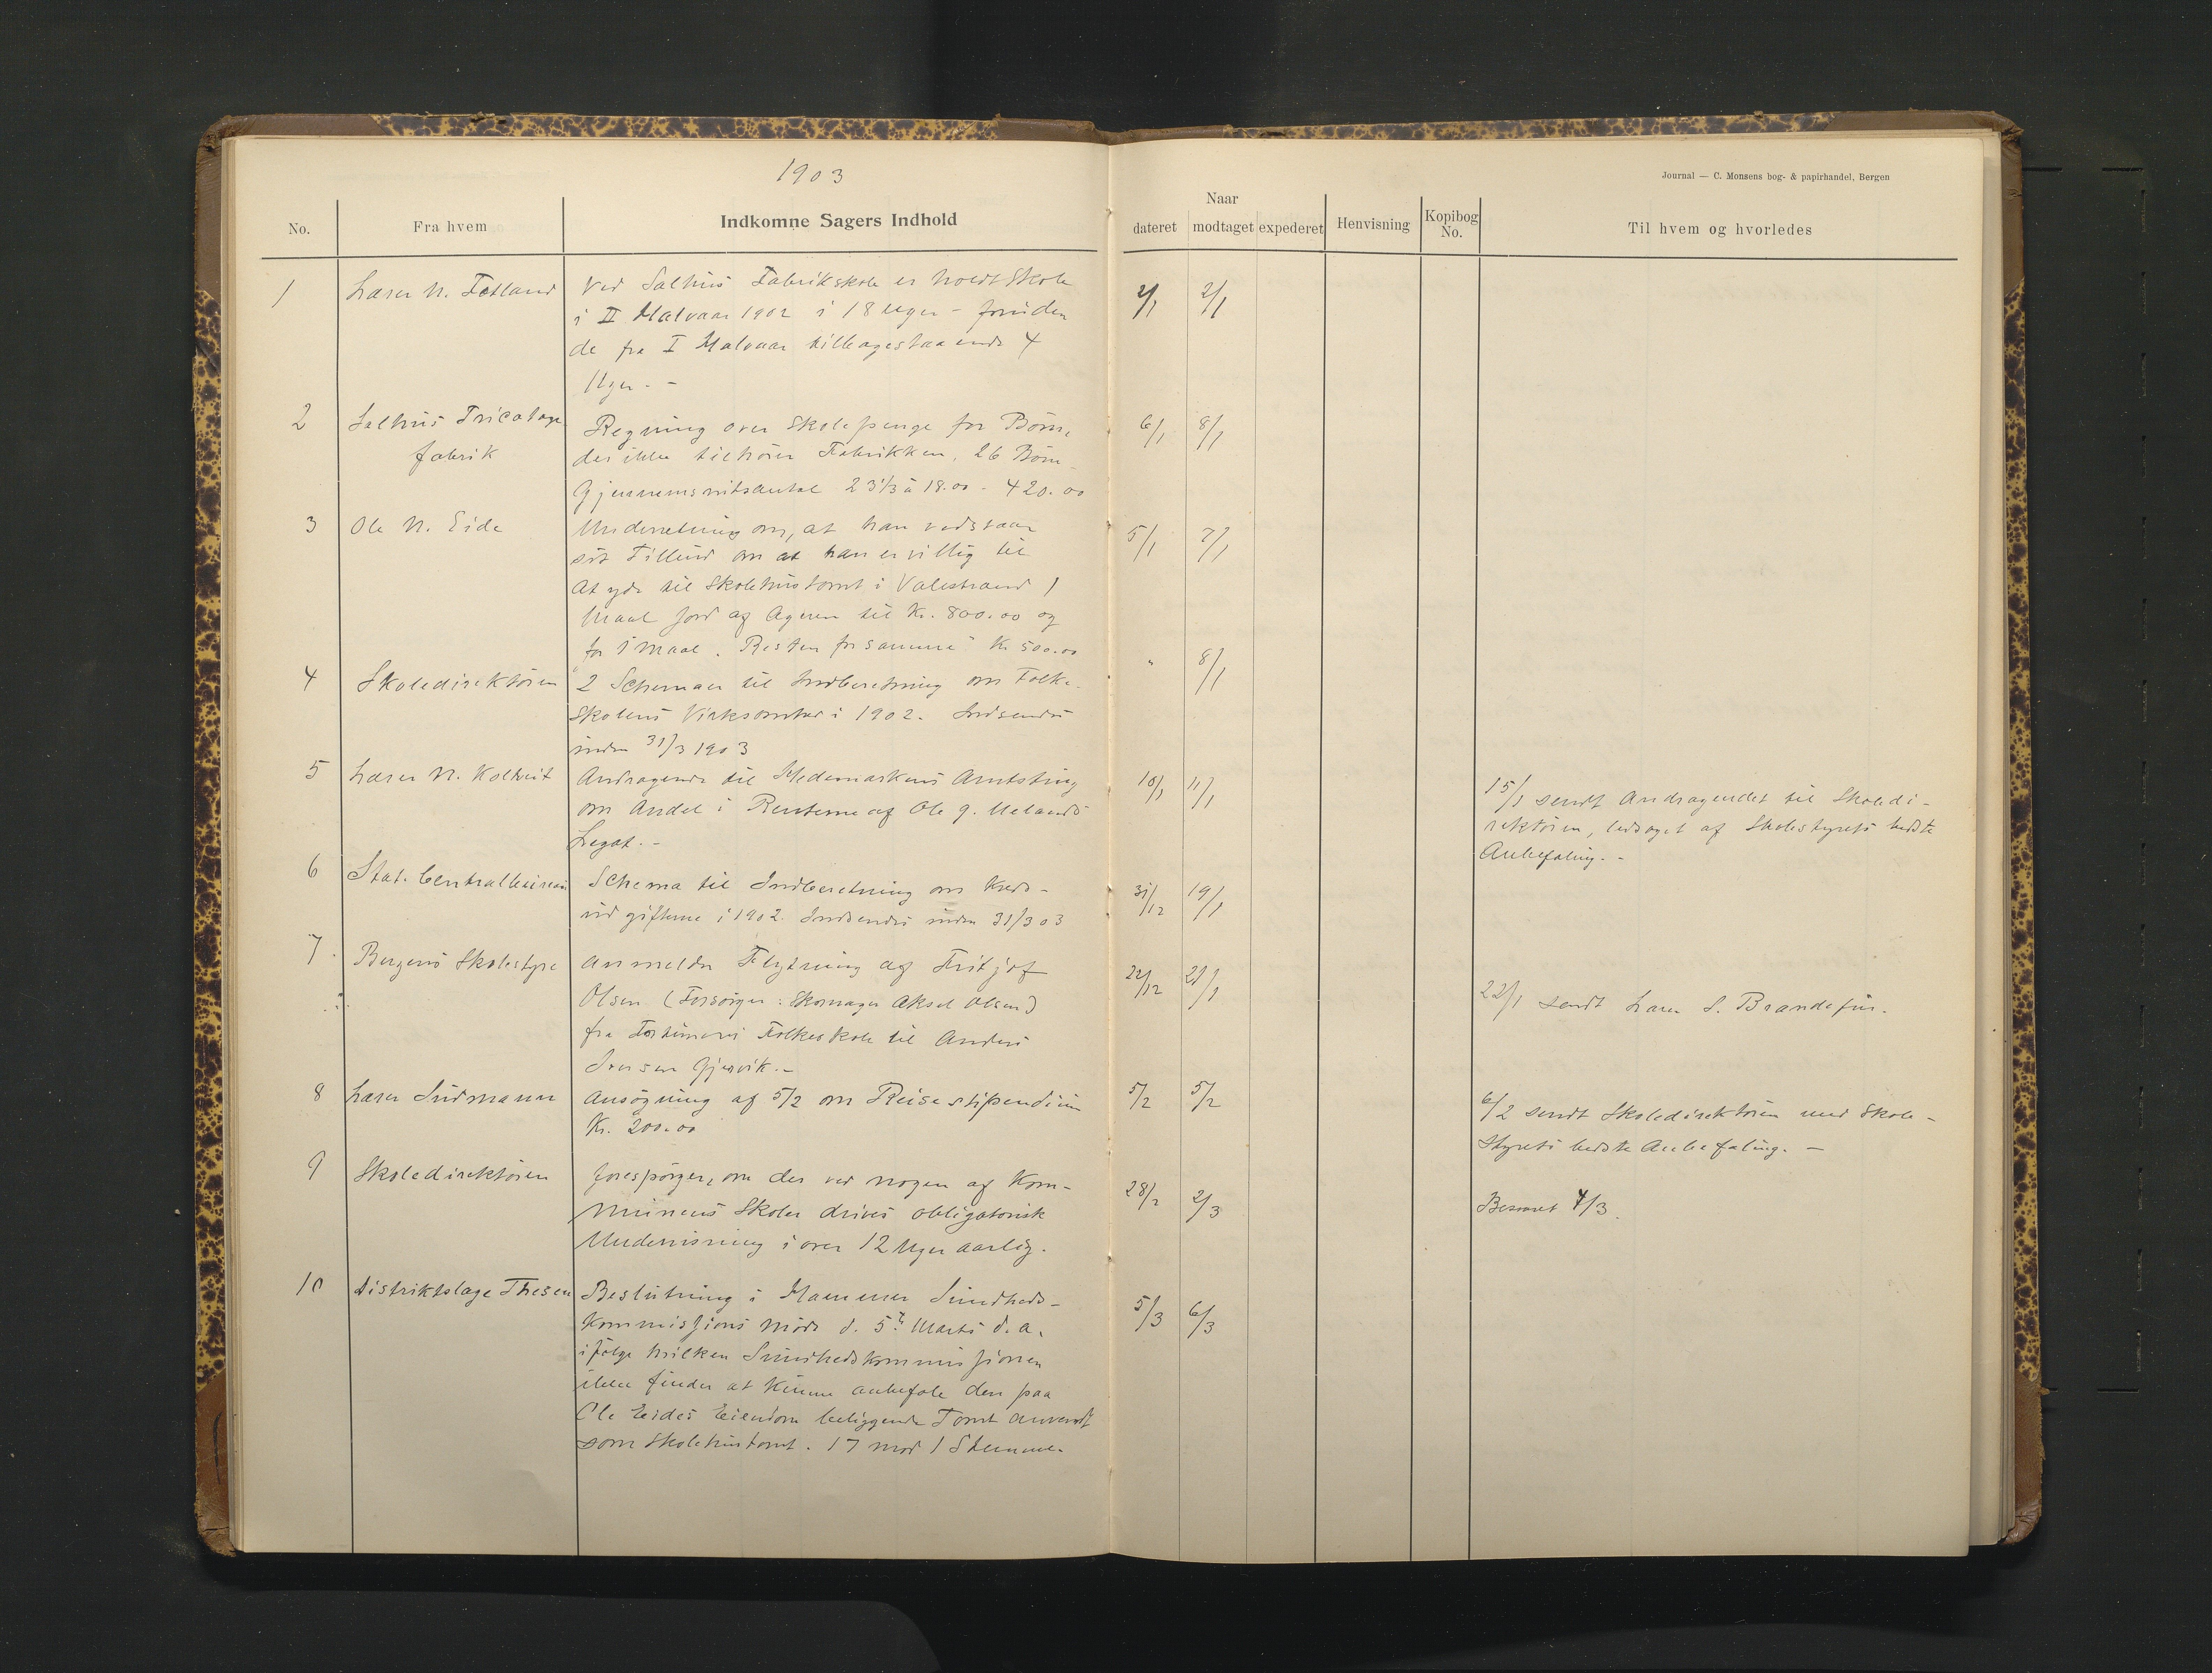 1903
Journal — C. Monsens bog- & papirhandel, Bergen
No. Fra hvem Indkomne Sagers Indhold Naar dateret modtaget expederet Henvisning Kopibog No. Til hvem og hvorledes
1 Lærer N. Fotland Ved Salhus Fabrikskole er holdt Skole 2/1 2/1
i II Halvaar 1902 i 18 Uger - foruden
de fra I Halvaar tilbagestaaende 4
Uger. -
2 Salhus Tricotage Regning over Skolepenge for Børn, 6/1 8/1
fabrik der ikke tilhører Fabrikken, 26 Børn
Gjennemsnitsantal 23 1/3 à 18.00 - 420.00
3 Ole N. Eide Underretning om, at han vedstaar 5/1 7/1
sit Tilbud om at han er villig til
at yde til Skolehustomt i Valestrand 1
Maal Jord af Ageren til Kr. 800.00 og
for 1 Maal. Resten for samme Kr 500.00
4 Skoledirektøren 2 Schemaer til Indberetning om Folke- " 8/1
skolens Virksomhed i 1902. Indsendes
inden 31/3 1903
5 Lærer N. Koltveit Andragende til Hedemarkens Amtsting 10/1 11/1 15/1 sendt Andragendet til Skoledi-
om Andel i Renterne af Ole G. Uelands rektøren, ledsaget af Skolestyrets bedste
Legat. - Anbefaling. -
6 Stat. Centralbureau Schema til Indberetning om Kreds- 31/12 19/1
udgifterne i 1902. Indsendes inden 31/3 03
7. Bergens Skolestyre Anmelder Flytning af Fritjof 22/12 21/1
Olsen (Forsørger: Skomager Aksel Olsen) 22/1 sendt Lærer S. Brandasün.
fra Folkeskole til Anders
Iversen Gjervik. -
8 Lærer Sudmann Ansøgning af 5/2 om Reisestipendium 5/2 5/2 6/2 sendt Skoledirektøren med Skole-
Kr. 200.00 styrets bedste Anbefaling. -
9 Skoledirektøren forespørger, om der ved nogen af Kom- 28/2 2/3 Besvaret 4/3.
munens Skoler drives obligatorisk
Undervisning i over 12 Uger aarlig.
10 Distriktslæge Thesen Beslutning i Hammer Sundheds- 5/3 6/3
kommissjons Møde d. 5te Marts d.a.
ifølge hvilken Sundhedskommissjonen
ikke finder at kunne anbefale den paa
Ole Eides Eiendom beliggende Tomt anvendt
som Skolehustomt. 17 mod 1 Stemme.